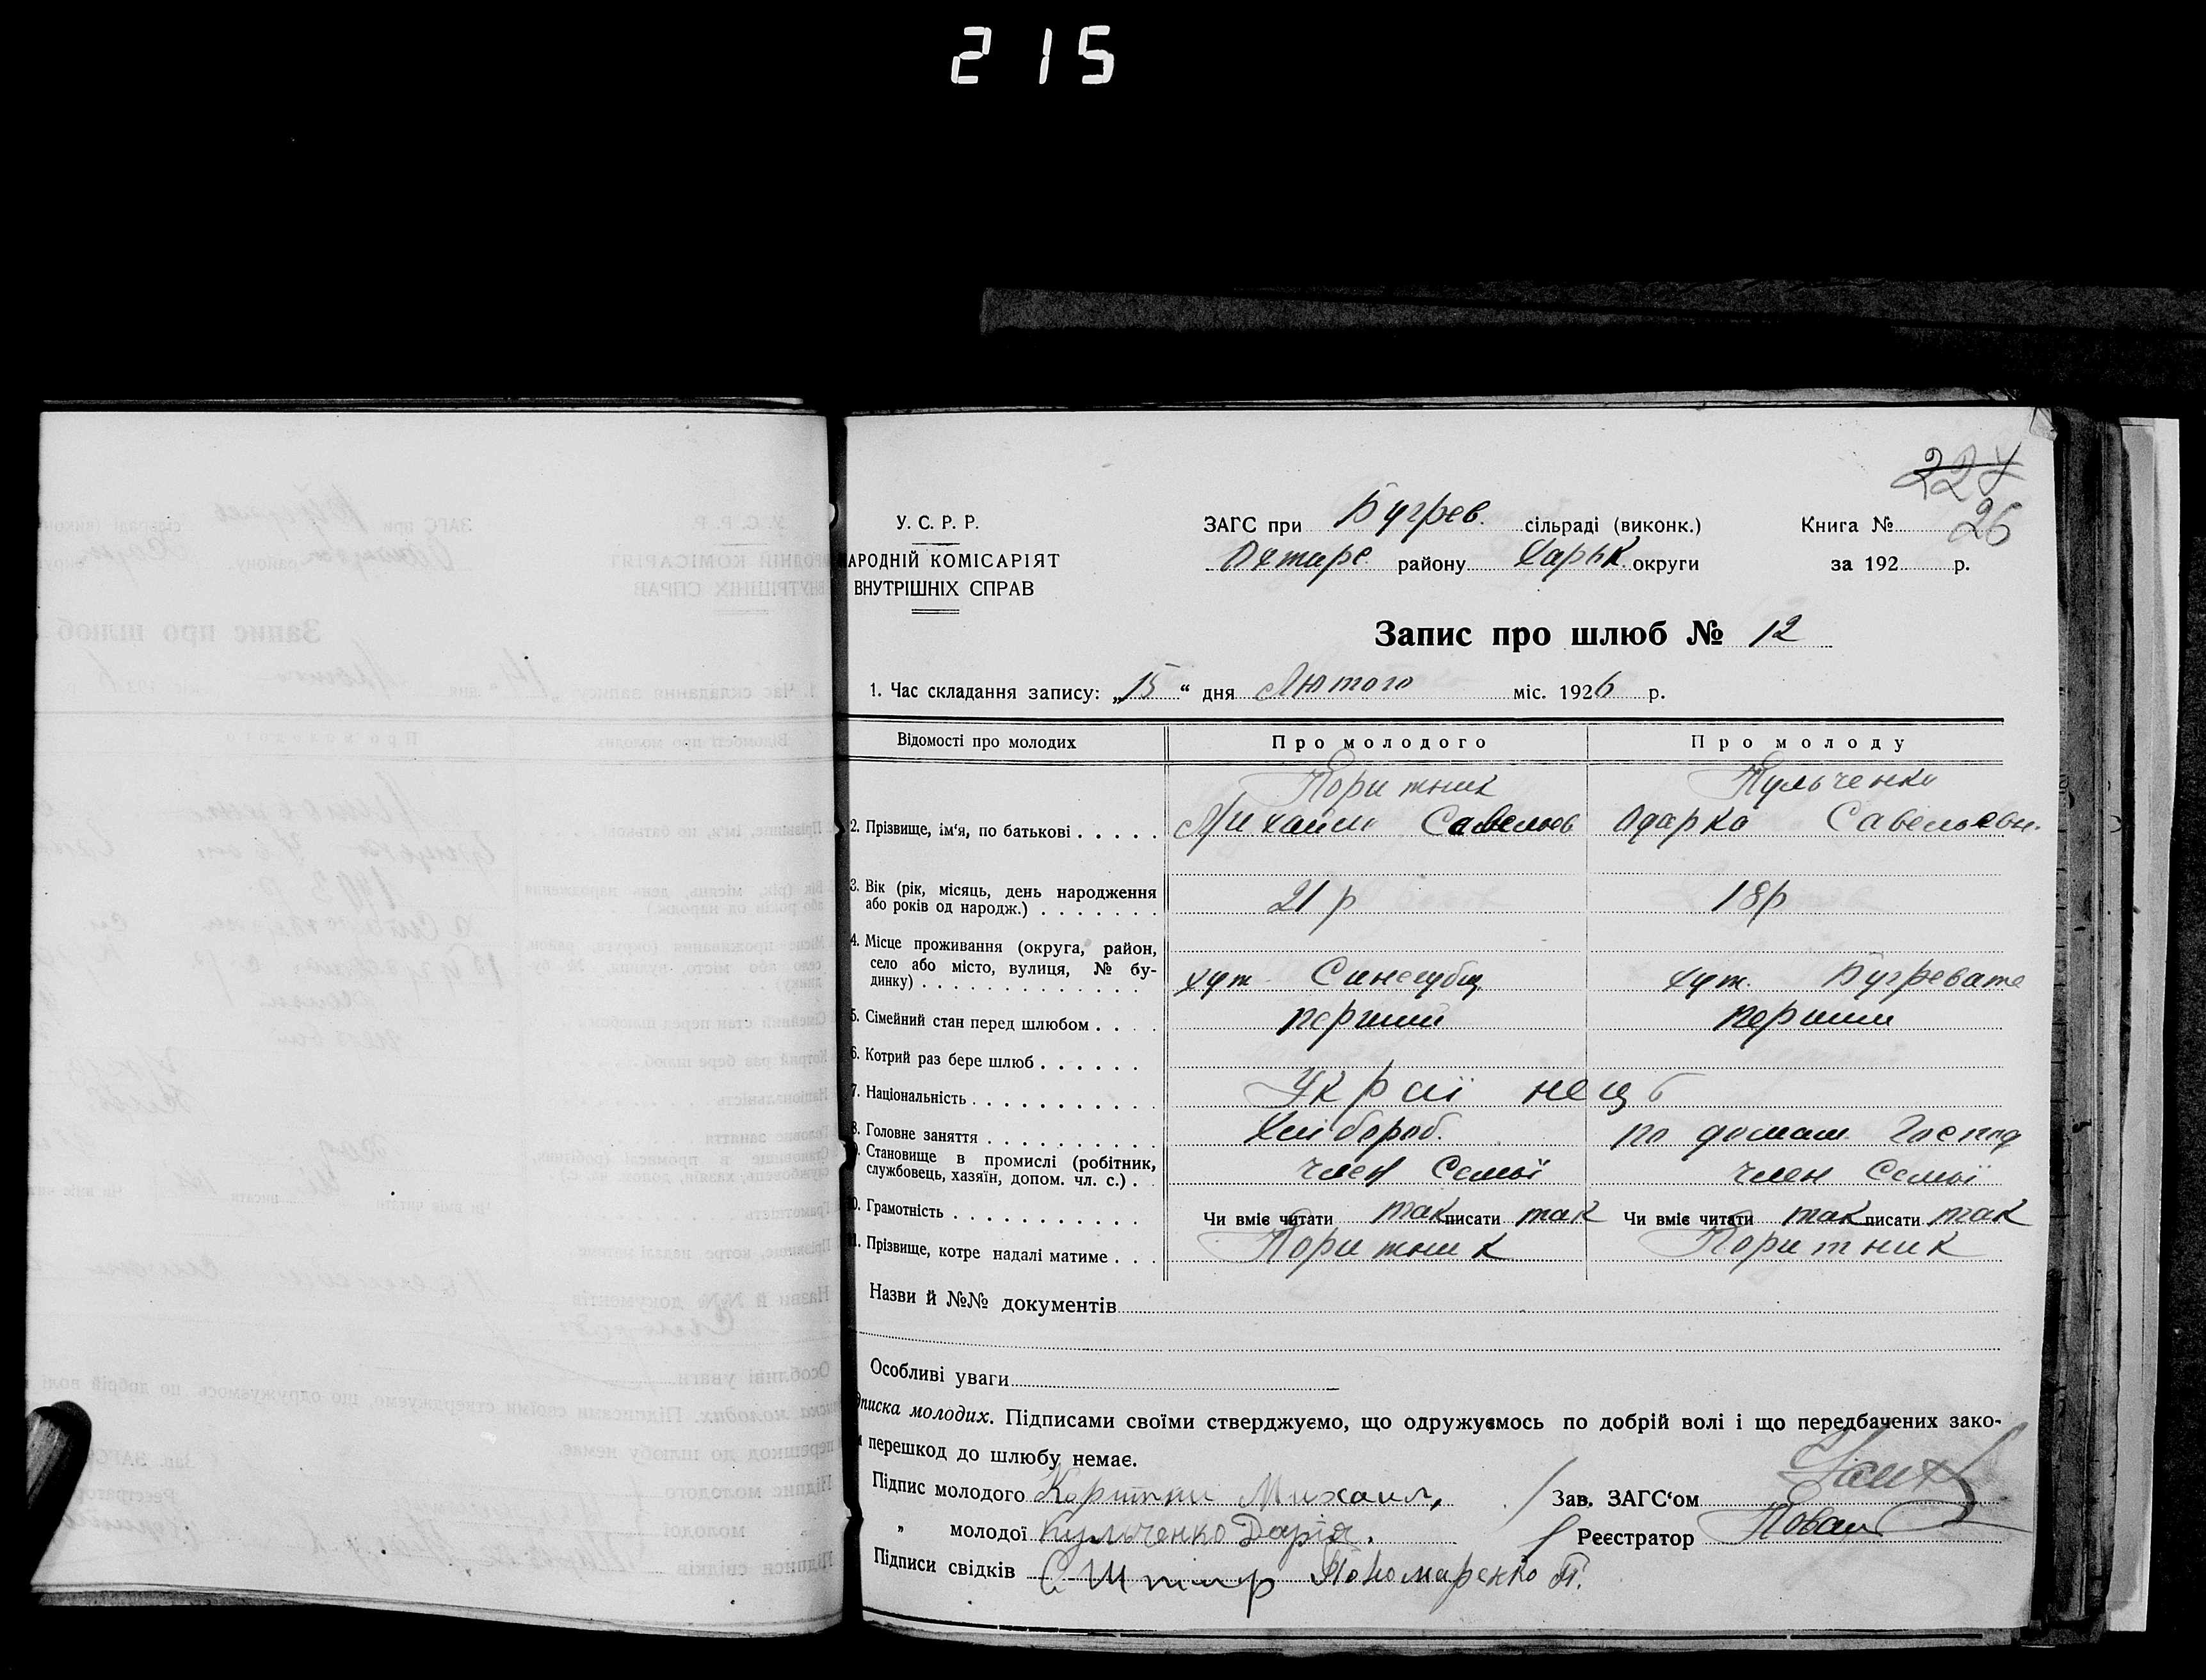 215
227
У. С. Р. Р.
АРОДНІЙ КОМІСАРІЯТ
ВНУТРІШНІХ СПРАВ
ЗАГС при Бугрев. сільраді (виконк.)
Охтирс. району Харьк. округи
Книга № 26
за 192 р.
Запис про шлюб № 12
1. Час складання запису: „15“ дня Лютого міс. 1926 р.
Відомості про молодих Про молодого Про молоду
Коритник Кульченко
2. Прізвище, ім'я, по батькові . . . . . Михайло Савельев Одарка Савельевн.
3. Вік (рік, місяць, день народження
або років од народж.) . . . . . . . 21 р 18 р
4. Місце проживання (округа, район,
село або місто, вулиця, № бу-
динку) . . . . . . . . . . . . . . хут. Синегубц хут. Бугревате
5. Сімейний стан перед шлюбом . . . . перший перший
6. Котрий раз бере шлюб . . . . . .
7. Національність . . . . . . . . . . . Украї нец
8. Головне заняття . . . . . . . . . . Хлібороб. по домаш. Господ
. Становище в промислі (робітник,
службовець, хазяїн, допом. чл. с.) . . член Семьї член Семьї
0. Грамотність . . . . . . . . . . . Чи вміє читати так писати так Чи вміє читати так писати так
1. Прізвище, котре надалі матиме . . . Коритник Коритник
Назви й №№ документів
Особливі уваги
дписка молодих. Підписами своїми стверджуємо, що одружуємось по добрій волі і що передбачених зако-
перешкод до шлюбу немає.
Підпис молодого Михаил,
Зав. ЗАГС'ом
„ молодої Кульченко Дарія.
Реєстратор
Підписи свідків Пономаренко П.